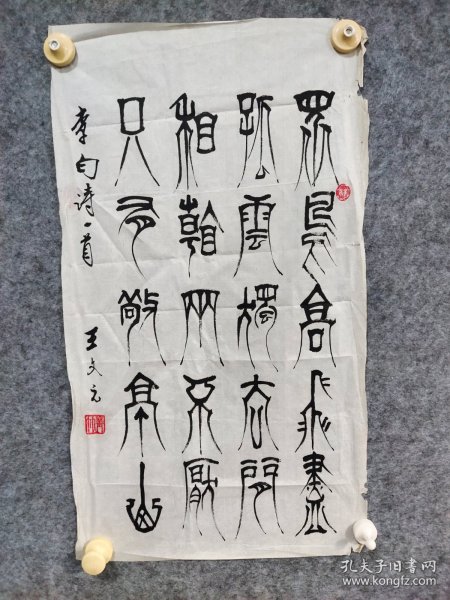 眾鳥高飛盡
孤雲獨去閒
相看兩不厭
只有敬亭山
李白诗一首
王文元
孔夫子旧书网
www.kongfz.com